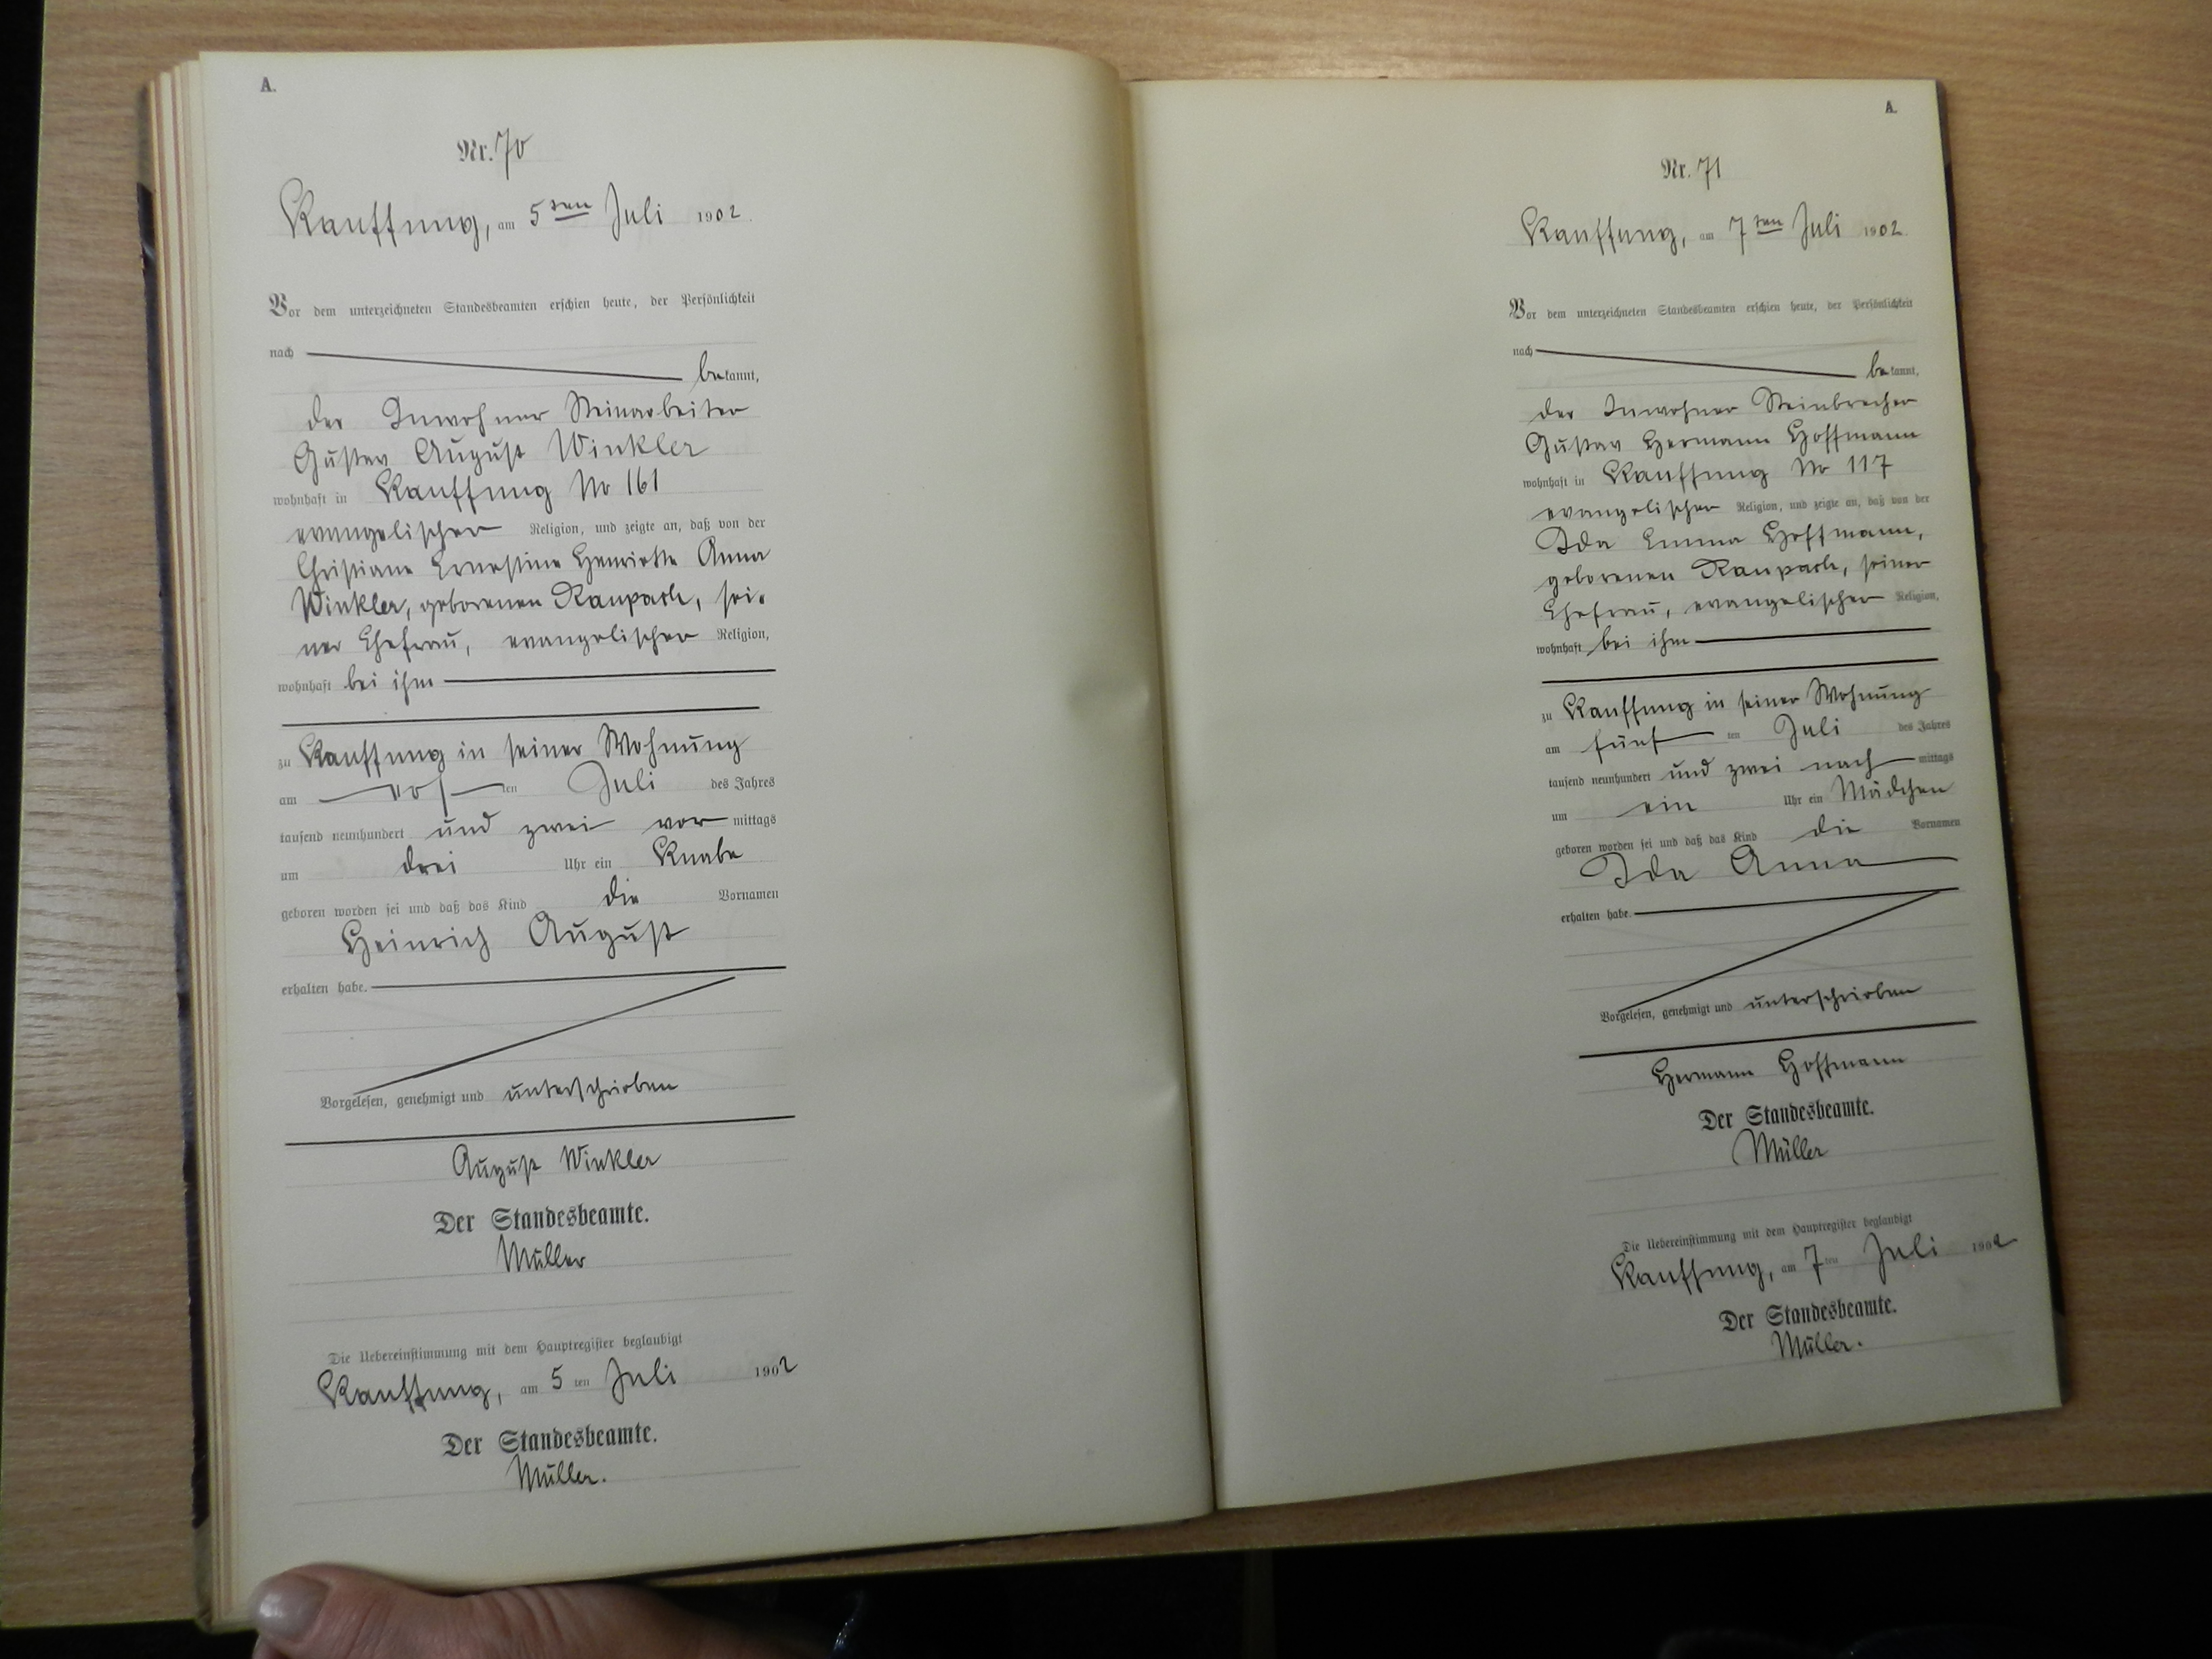 A.
Nr. 70
Kauffung, am 5ten Juli 1902.
Vor dem unterzeichneten Standesbeamten erschien heute, der Persönlichkeit
nach
bekannt,
der Inwohner Steinarbeiter
Gustav August Winkler
wohnhaft in Kauffung No 161
evangelischer Religion, und zeigte an, daß von der
Christiane Ernestine Henriette Anna
Winkler, geborenen Raupach, sei-
ner Ehefrau, evangelischer Religion,
wohnhaft bei ihm
zu Kauffung in seiner Wohnung
am ten Juli des Jahres
tausend neunhundert und zwei vor mittags
um drei Uhr ein Knabe
geboren worden sei und daß das Kind die Vornamen
Heinrich August
erhalten habe.
Vorgelesen, genehmigt und unterschrieben
August Winkler
Der Standesbeamte.
Müller
Die Uebereinstimmung mit dem Hauptregister beglaubigt
Kauffung, am 5 ten Juli 1902
Der Standesbeamte.
Müller.
A.
Nr. 71
Kauffung, am 7ten Juli 1902.
Vor dem unterzeichneten Standesbeamten erschien heute, der Persönlichkeit
nach
bekannt,
der Inwohner Steinbrecher
Gustav Hermann Hoffmann
wohnhaft in Kauffung No 117
evangelischer Religion, und zeigte an, daß von der
Ida Emma Hoffmann,
geborenen Raupach, seiner
Ehefrau, evangelischer Religion,
wohnhaft bei ihm
zu Kauffung in seiner Wohnung
am fünf ten Juli des Jahres
tausend neunhundert und zwei nach mittags
um ein Uhr ein Mädchen
geboren worden sei und daß das Kind die Vornamen
Ida Anna
erhalten habe.
Vorgelesen, genehmigt und unterschrieben
Hermann Hoffmann
Der Standesbeamte.
Müller
Die Uebereinstimmung mit dem Hauptregister beglaubigt
Kauffung, am 7 ten Juli 1902
Der Standesbeamte.
Müller.